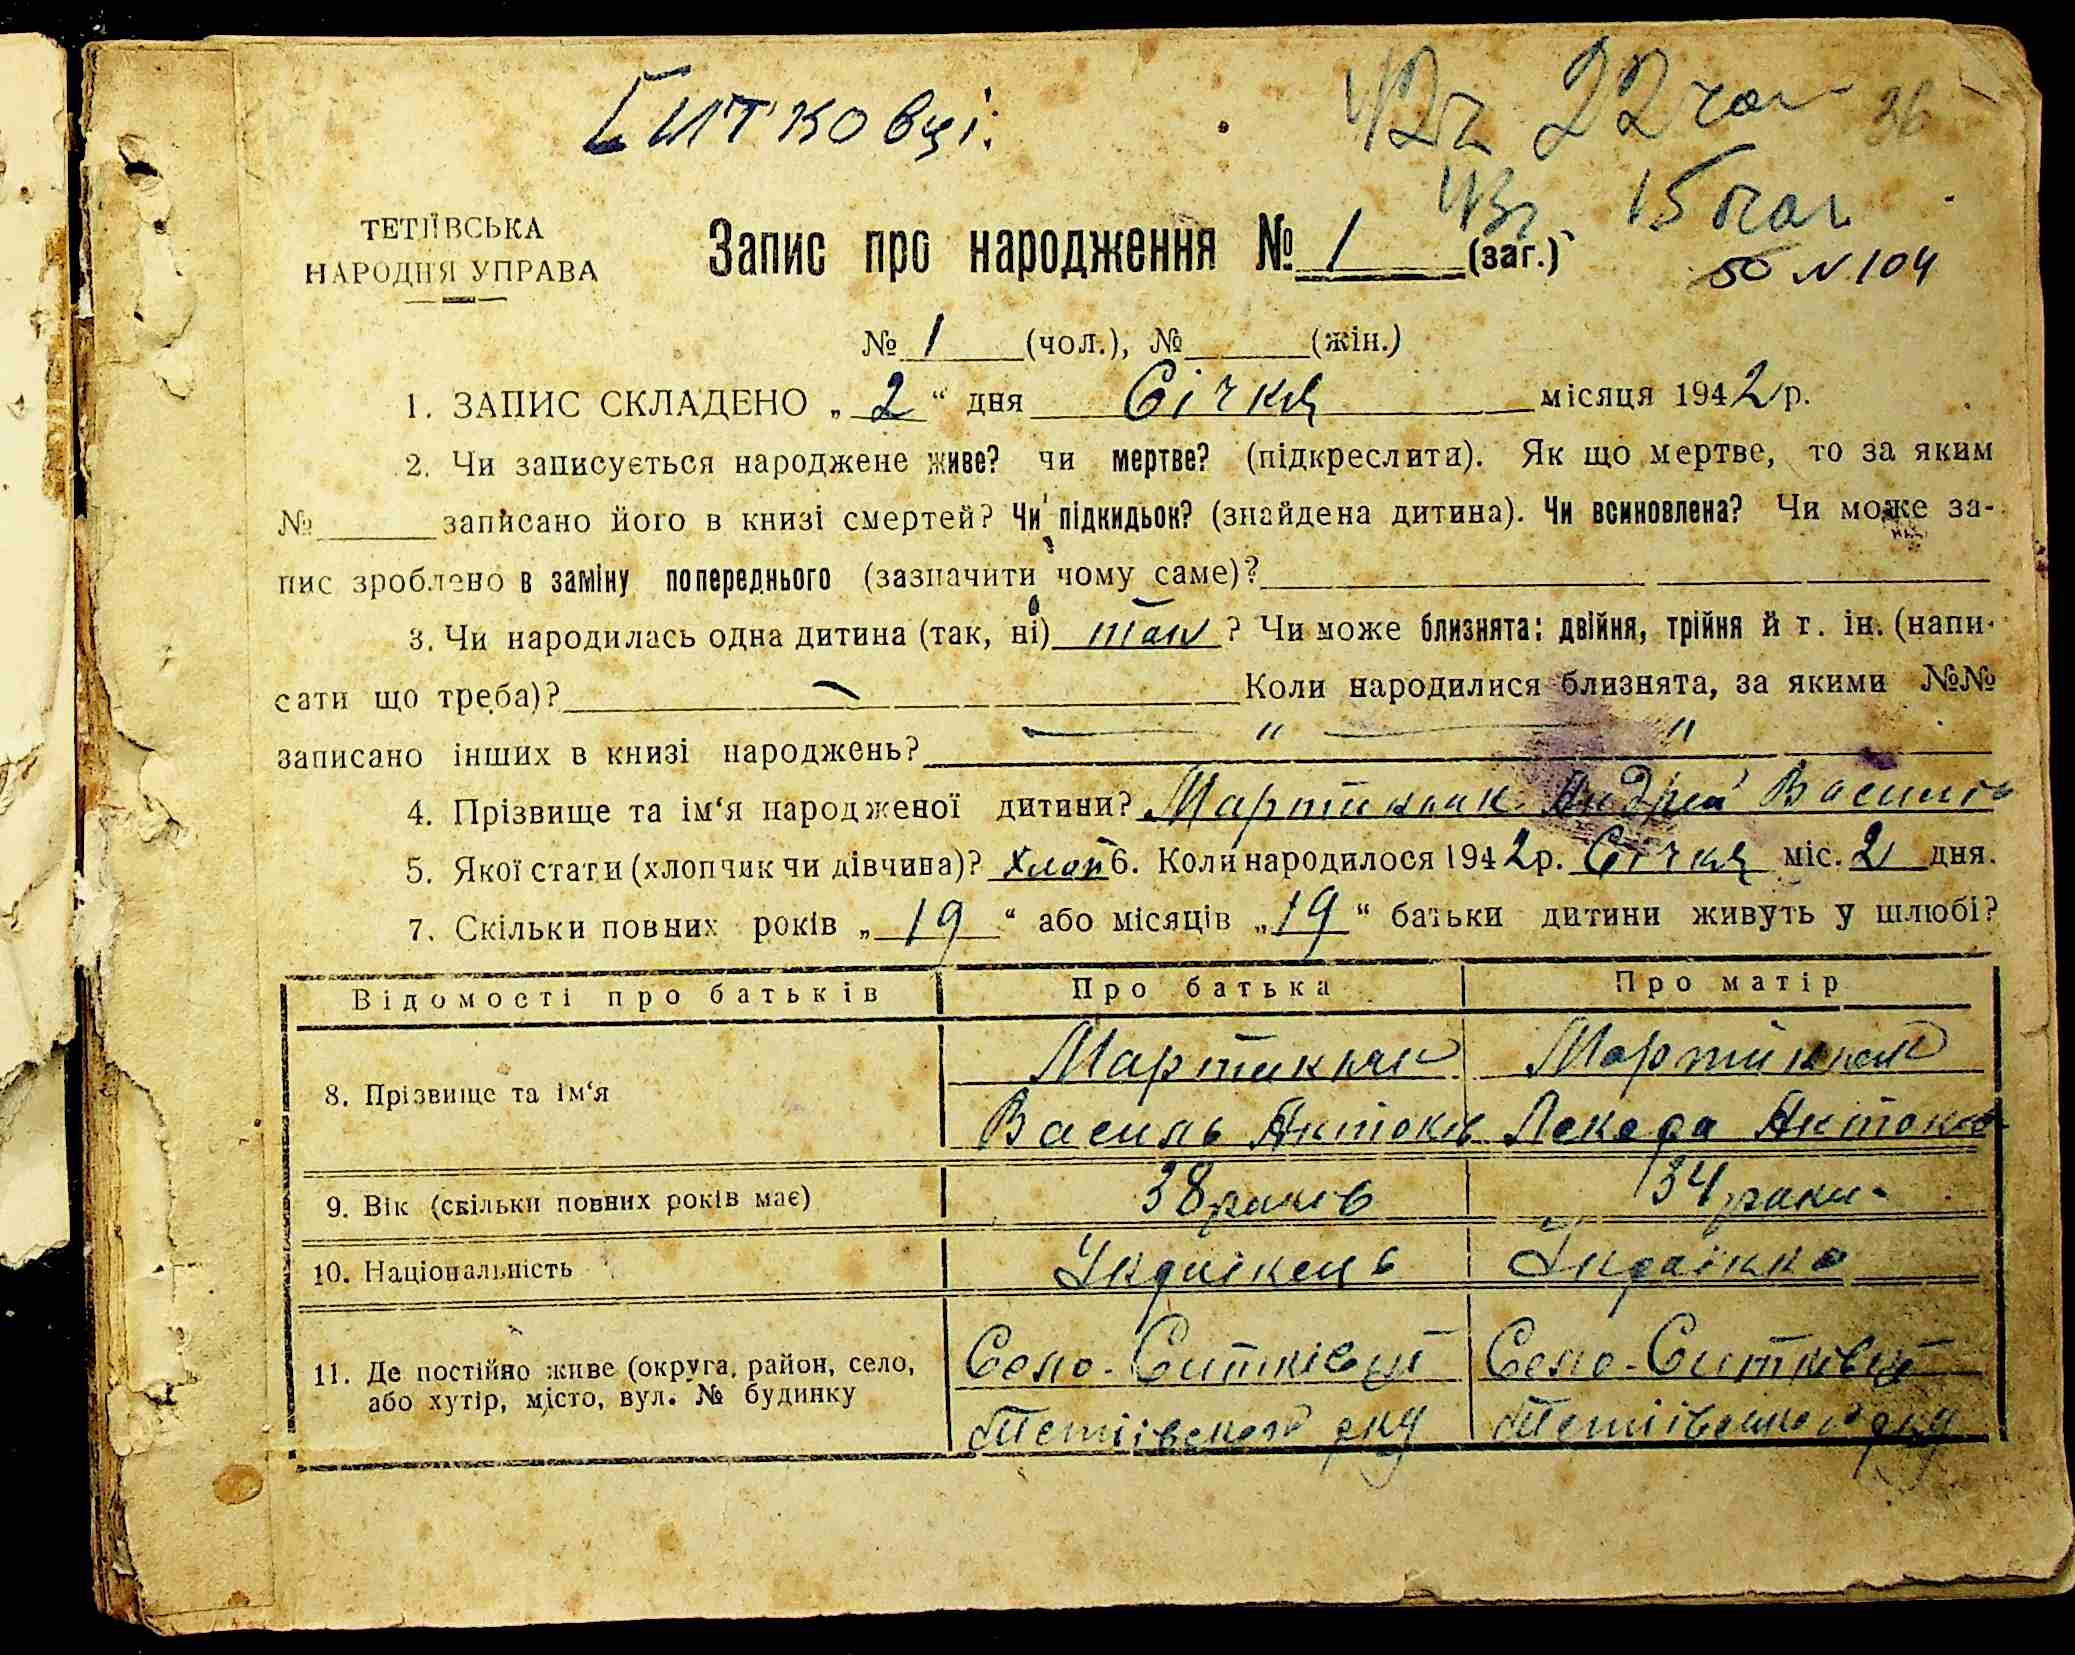 Ситковці.
42г 22
36
43г 15
ТЕТІЇВСЬКА
НАРОДНЯ УПРАВА
Запис про народження № 1 (заг.)
50 N 104
№ 1 (чол.), № (жін.)
1. ЗАПИС СКЛАДЕНО „ 2 “ дня Січня місяця 1942 р.
2. Чи записується народжене живе? чи мертве? (підкреслити). Як що мертве, то за яким
№ записано його в книзі смертей? Чи підкидьок? (знайдена дитина). Чи всиновлена? Чи може за-
пис зроблено в заміну попереднього (зазначити чому саме)?
3. Чи народилась одна дитина (так, ні) так ? Чи може близнята: двійня, трійня й т. ін. (напи-
сати що треба)? — Коли народилися близнята, за якими №№
записано інших в книзі народжень? — " — "
4. Прізвище та ім‘я народженої дитини? Мартинюк Андрій Васил
5. Якої стати (хлопчик чи дівчина)? хлоп 6. Коли народилося 1942 р. Січня міс. 2 дня.
7. Скільки повних років „ 19 “ або місяців „ 19 “ батьки дитини живуть у шлюбі?
Відомості про батьків Про батька Про матір
8. Прізвище та ім‘я Мартинюк Мартинюк
Василь Антонів Антонів
9. Вік (скільки повних років має) 38 років 34 роки
10. Національність Українець Українка
11. Де постійно живе (округа, район, село, Село-Ситківці Село-Ситківці
або хутір, місто, вул. № будинку Тетіївского р-ну Тетіївского р-ну